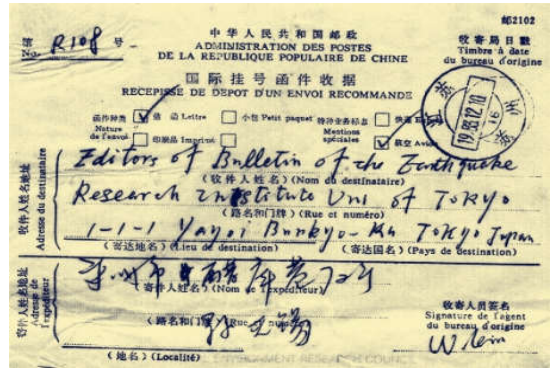 邮2102
第 R108 号
No.
中华人民共和国邮政
ADMINISTRATION DES POSTES
DE LA REPUBLIQUE POPULAIRE DE CHINE
收寄局日戳
Timbre à date
du bureau d'origine
国际挂号函件收据
RECEPISSE DE DEPOT D'UN ENVOI RECOMMANDE
函件种类 信函 Lettre 小包 Petit paquet 特种业务标志 快递
Nature de l'envoi 印刷品 Imprimé Mentions spéciales 航空 Avion
苏州
1985.12.10
收件人姓名地址
Adresse du destinataire
Editors of Bulletin of the Earthquake
(收件人姓名) (Nom du destinataire)
Research Institute Uni of Tokyo
(路名和门牌) (Rue et numéro)
1-1-1 Yayoi Bunkyo-Ku Tokyo Japan
(寄达地名) (Lieu de destination) (寄达国名) (Pays de destination)
寄件人姓名地址
Adresse de l'expéditeur
苏州市
(寄件人姓名) (Nom de l'expéditeur)
(路名和门牌) (Rue et numéro)
(地名) (Localité)
收寄人员签名
Signature de l'agent
du bureau d'origine
ENVIRONMENT RESEARCH COUNCIL